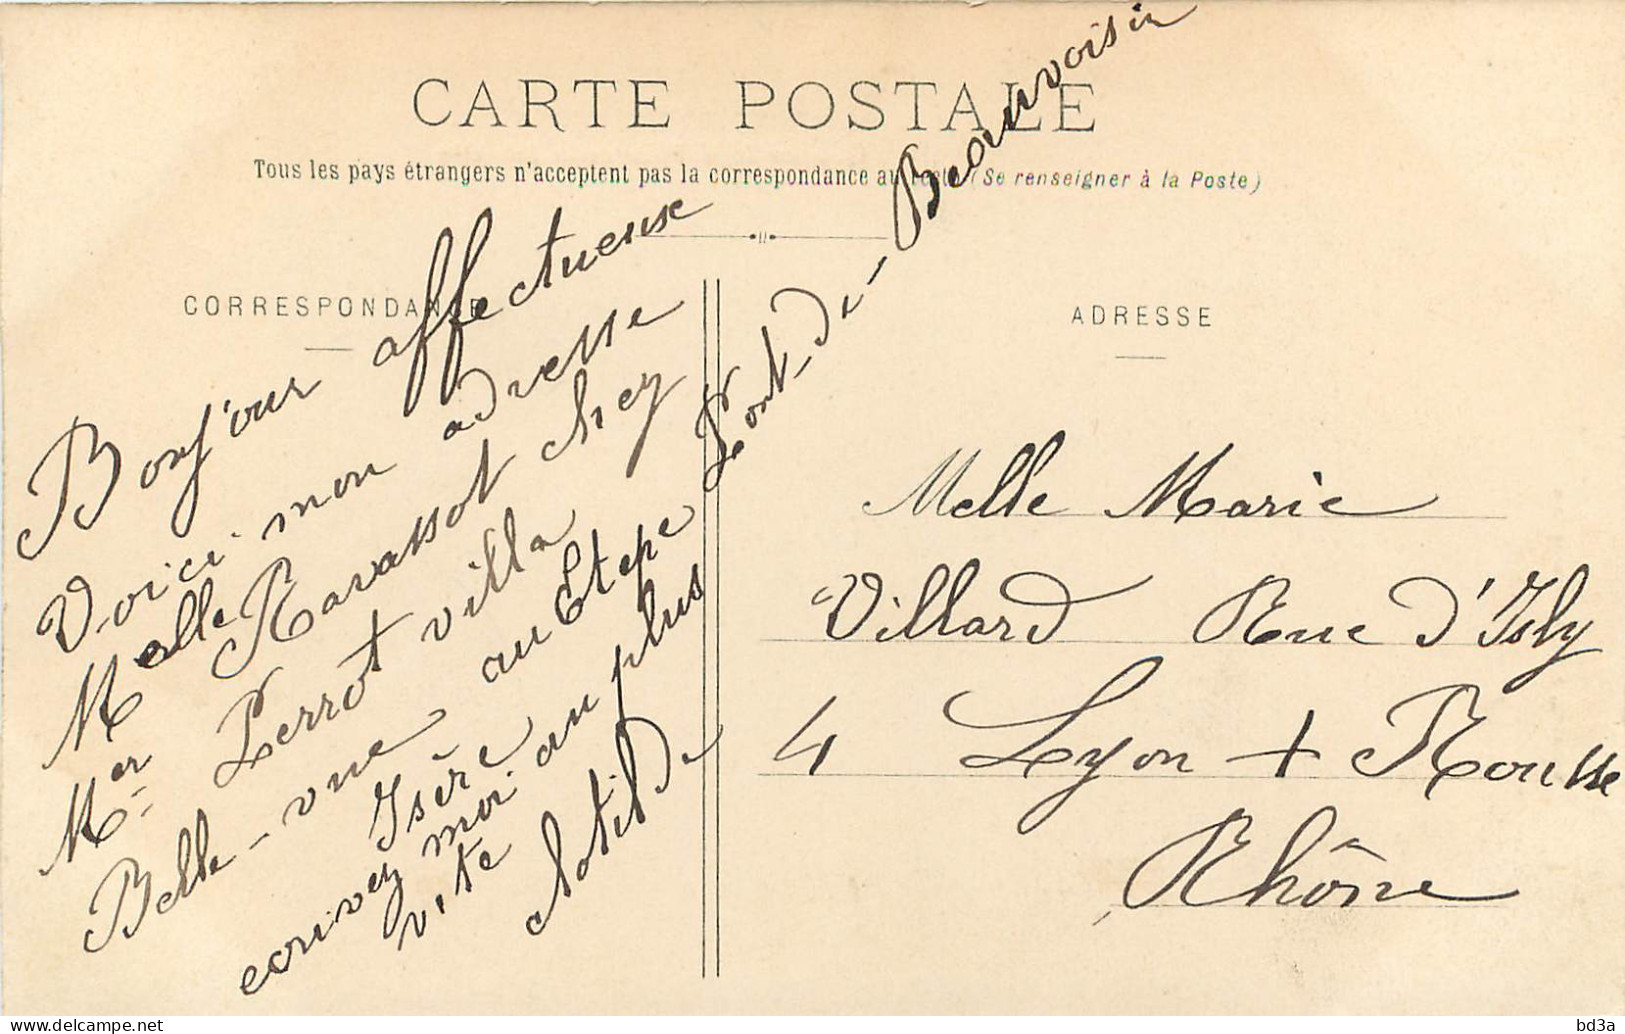 CARTE POSTALE
Tous les pays étrangers n'acceptent pas la correspondance au recto (Se renseigner à la Poste)
CORRESPONDANCE
Bonjour affectueuse
Voici mon adresse
Melle Ravassot chez
Mer Perrot villa
Belle-vue au Pont-de-Beauvoisin
Isère
ecrivez moi au plus
vite
clotilde
ADRESSE
Melle Marie
Villard Rue d'Isly
4 Lyon + Rousse
Rhône
delcampe.net
bd3a